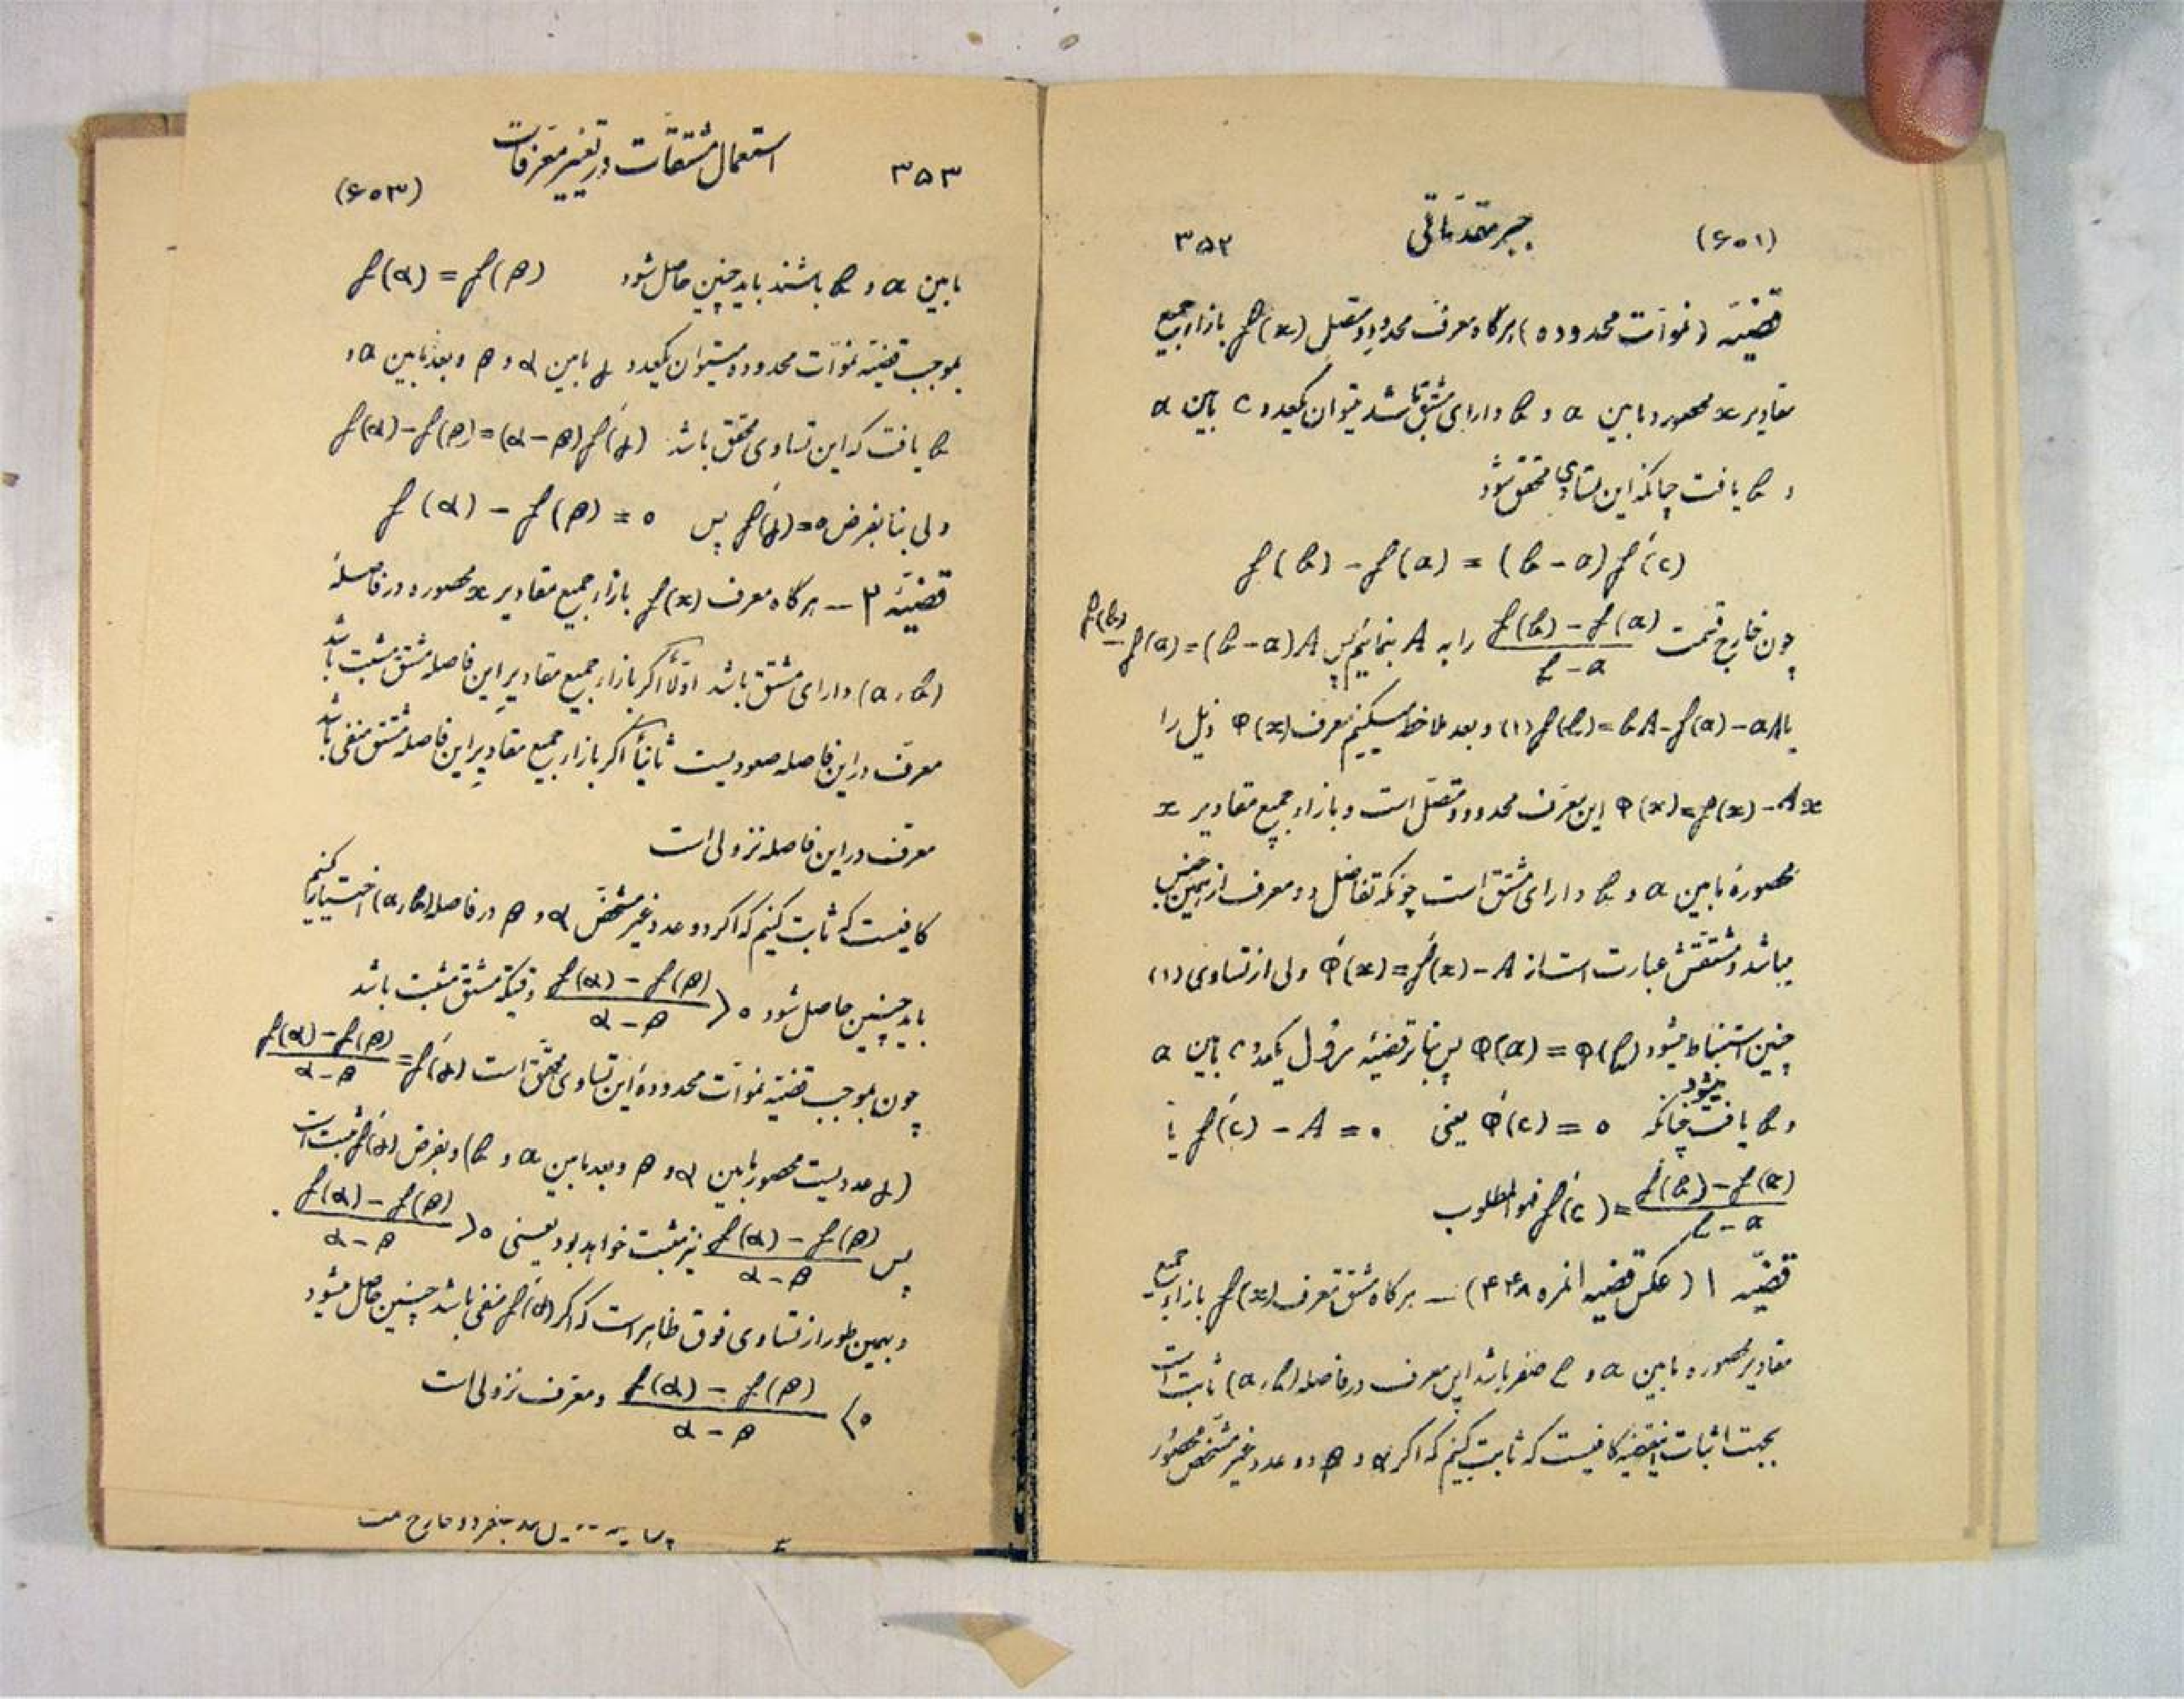 (۶۰۱) جبر مقدماتی ۳۵۲
قضیّه (نموّات محدوده) هرگاه معرف محدود و متصل f(x) بازاء جمیع
مقادیر x محصوره مابین a و b دارای مشتق باشد میتوان یکعدد c مابین a
و b یافت چنانکه این تساوی محقق شود
f(b) - f(a) = (b - a) f′(c)
چون خارج قسمت (f(b) - f(a))/(b - a) را به A بنمائیم پس f(b) - f(a) = (b - a) A
یا f(b) = bA - f(a) - aA (۱) و بعد ملاحظه میکنیم معرف φ(x) ذیل را
φ(x) = f(x) - Ax این معرف محدود و متصل است و بازاء جمیع مقادیر x
محصوره مابین a و b دارای مشتق است چونکه تفاضل دو معرف از همین جنس
میباشد و مشتقش عبارت است از φ′(x) = f′(x) - A ولی از تساوی (۱)
چنین استنباط میشود φ(a) = φ(b) پس بنابر قضیّه رول یکعدد c مابین a
و b یافت میشود چنانکه φ′(c) = ۰ یعنی f′(c) - A = ۰ یا
f′(c) = (f(b) - f(a))/(b - a) فهو المطلوب
قضیّه ۱ (عکس قضیه نمره ۴۴۸) — هرگاه مشتق معرف f(x) بازاء جمیع
مقادیر محصوره مابین a و b صفر باشد این معرف در فاصله (a,b) ثابت است
بجهت اثبات اینقضیه کافیست که ثابت کنیم که اگر α و β دو عدد غیر مشخص محصور
۳۵۳ استعمال مشتقات در تغییر معرفات (۶۰۳)
مابین a و b باشند باید چنین حاصل شود f(α) = f(β)
بموجب قضیّه نموّات محدوده میتوان یکعدد γ مابین α و β و بعد مابین a و
b یافت که این تساوی محقق باشد f(α) - f(β) = (α - β) f′(γ)
ولی بنا بفرض f′(γ) = ۰ پس f(α) - f(β) = ۰
قضیّه ۲ — هرگاه معرف f(x) بازاء جمیع مقادیر x محصوره در فاصله
(a,b) دارای مشتق باشد اولاً اگر بازاء جمیع مقادیر این فاصله مشتق مثبت باشد
معرف در این فاصله صعودیست ثانیاً اگر بازاء جمیع مقادیر این فاصله مشتق منفی باشد
معرف در این فاصله نزولی است
کافیست که ثابت کنیم که اگر دو عدد غیر مشخص α و β در فاصله (a,b) اختیار کنیم
باید چنین حاصل شود (f(α) - f(β))/(α - β) > ۰ وقتیکه مشتق مثبت باشد
چون بموجب قضیّه نموّات محدوده این تساوی محقق است f′(γ) = (f(α) - f(β))/(α - β)
(γ عددیست محصور مابین α و β و بعد مابین a و b) و بفرض f′(γ) مثبت است
پس (f(α) - f(β))/(α - β) نیز مثبت خواهد بود یعنی (f(α) - f(β))/(α - β) > ۰
و بهمین طور از تساوی فوق ظاهر است که اگر f′(γ) منفی باشد چنین حاصل میشود
(f(α) - f(β))/(α - β) < ۰ و معرف نزولی است